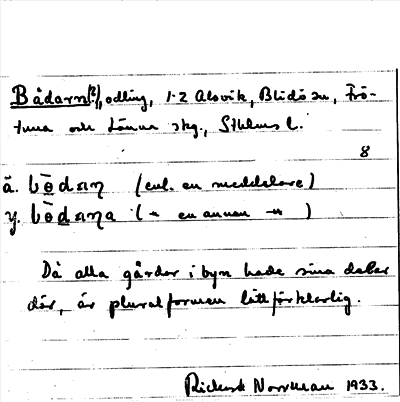 Bådarn(?), odling, 1-2 Alsvik, Blidö sn, Frö-
tuna och Länna skg., Sthlms l.
8
ä. (enl. en meddelare)
y. (" en annan ")
Då alla gårdar i byn hade sina delar
där, är pluralformen lättförklarlig.
Rickard Norrman 1933.